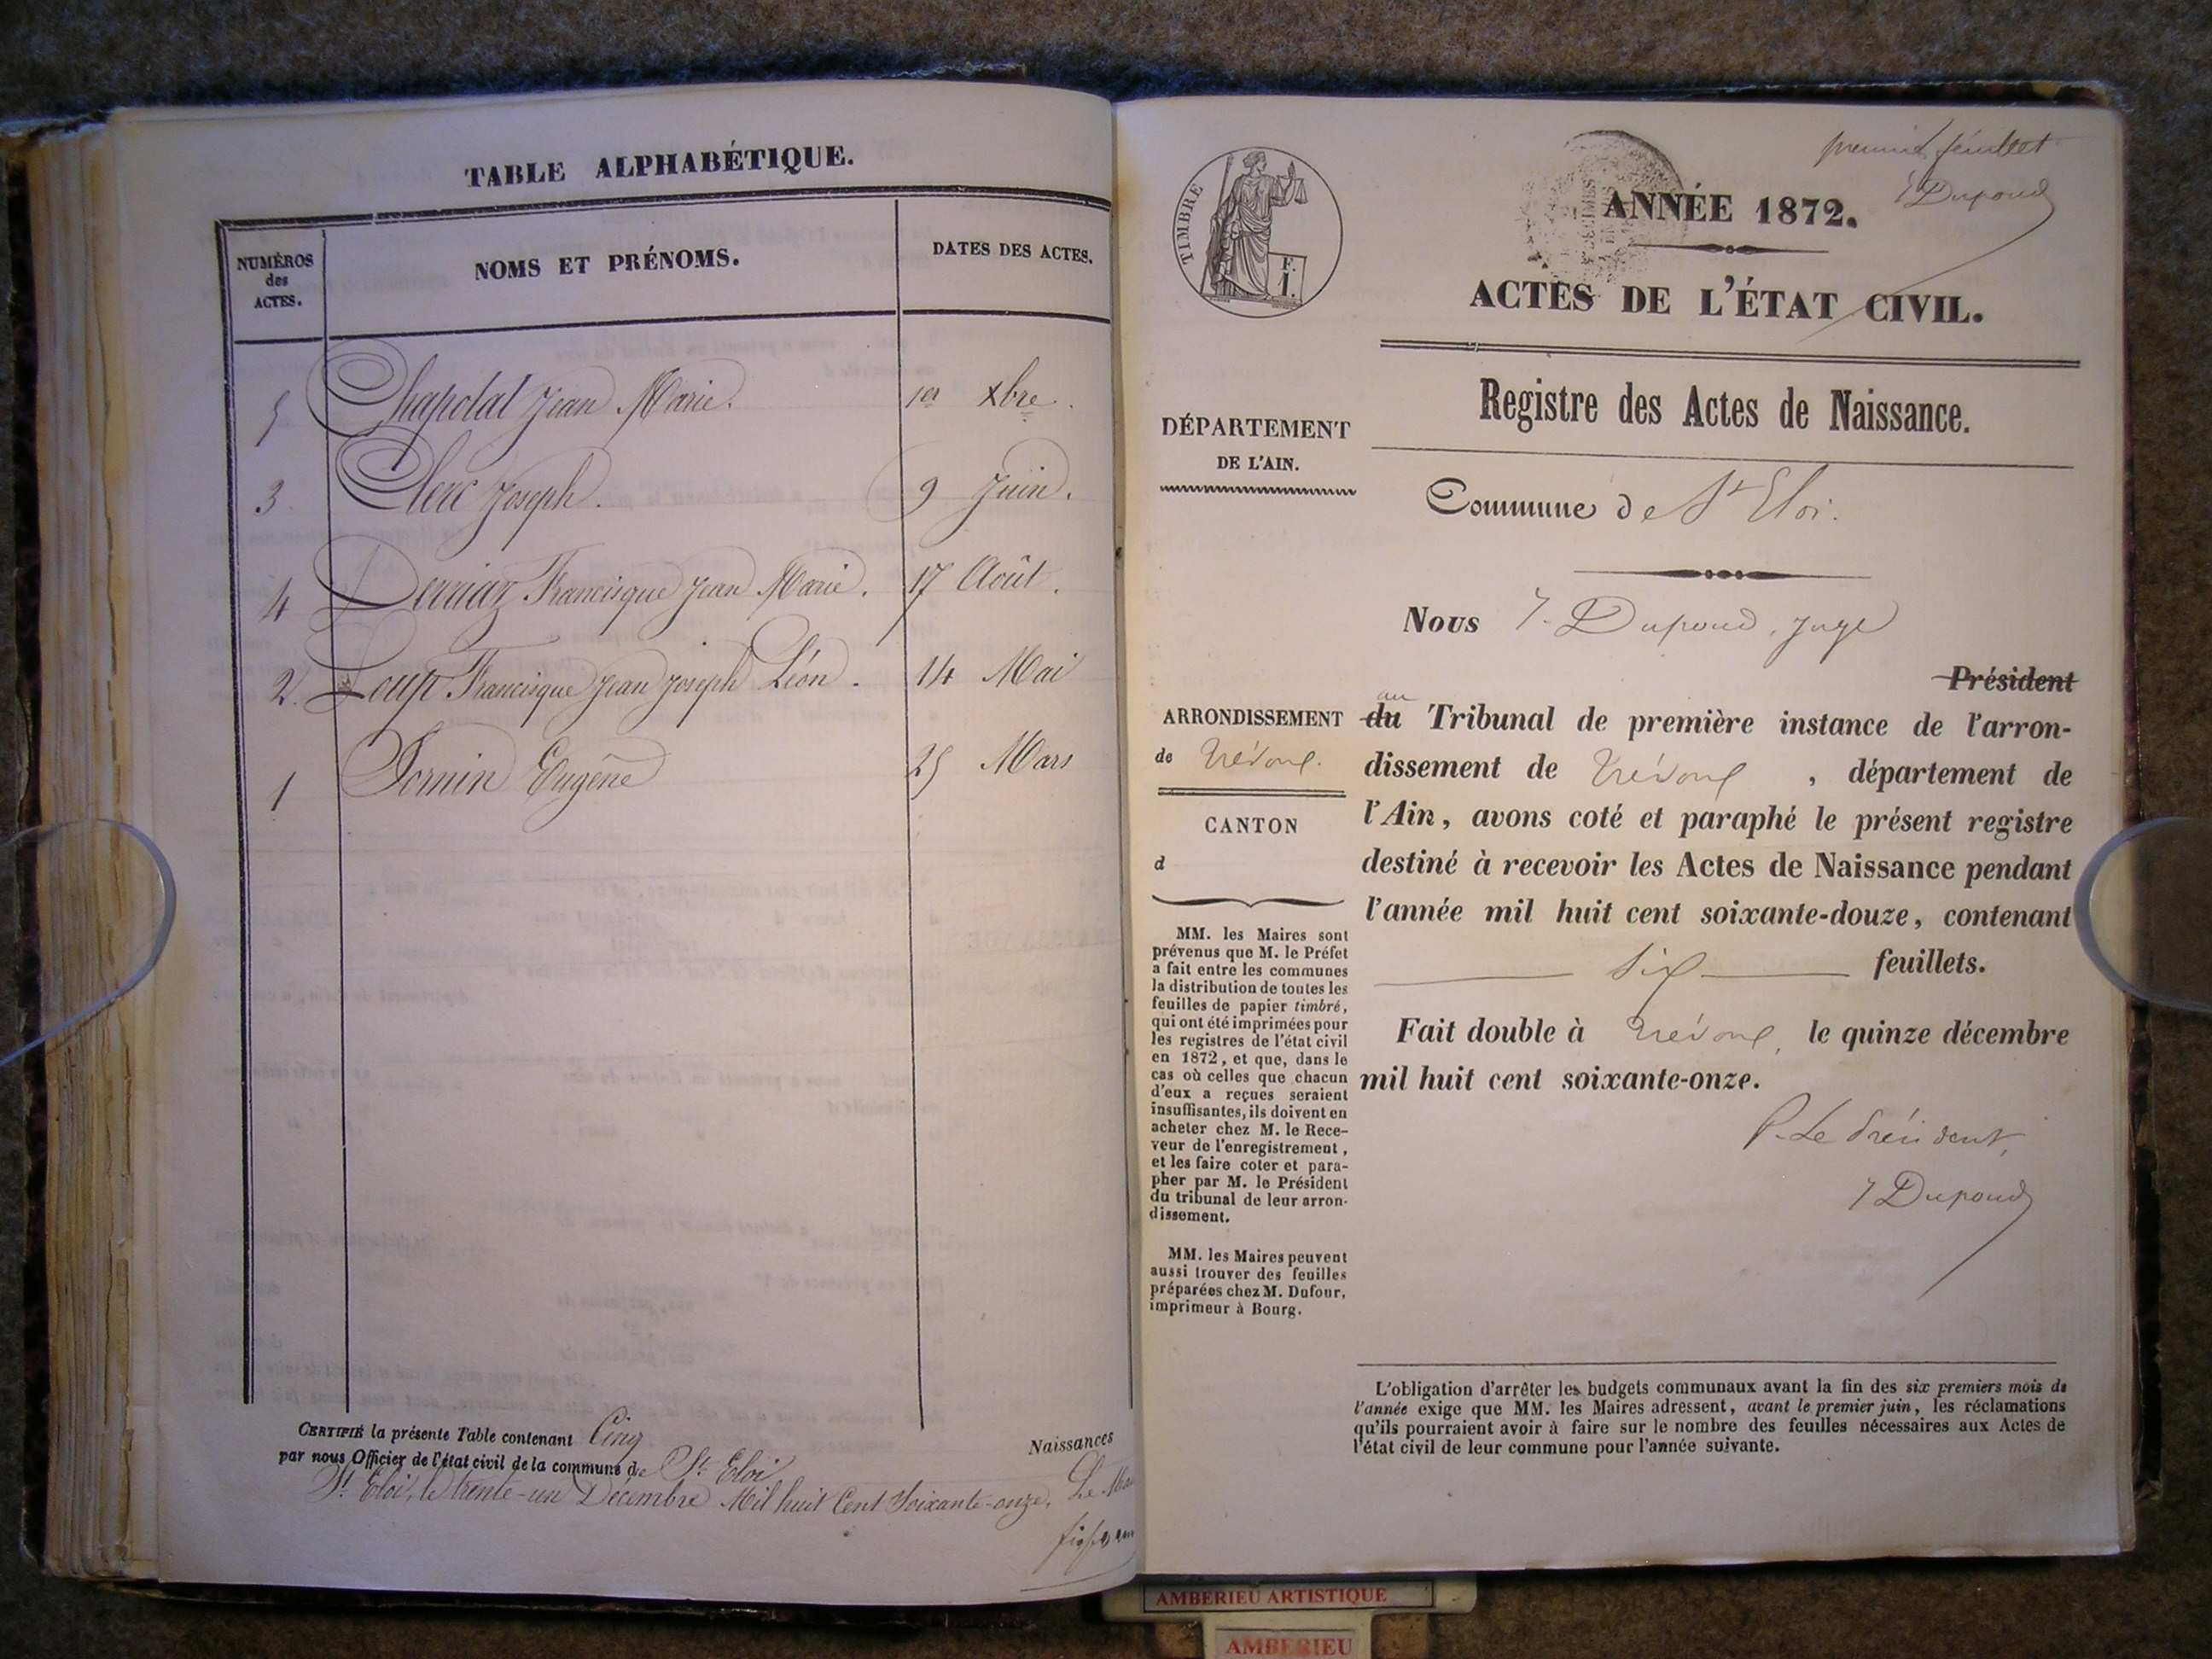 TABLE ALPHABÉTIQUE.
NUMÉROS
des
ACTES.
NOMS ET PRÉNOMS.
DATES DES ACTES.
5 Chapolat Jean Marie. 1er Xbre.
3 Clerc Joseph. 9 Juin.
4 Francisque Jean Marie. 17 Août.
2. Loup Francisque Jean Joseph Léon. 14 Mai
1 Eugène 25 Mars
CERTIFIÉ la présente Table contenant Cinq Naissances
par nous Officier de l'état civil de la commune de St Eloi
St Eloi, le trente-un Décembre Mil huit Cent Soixante-onze. Le
premier feuillet
Dupoud
TIMBRE
F.
1.
ANNÉE 1872.
ACTES DE L'ÉTAT CIVIL.
Registre des Actes de Naissance.
DÉPARTEMENT
DE L'AIN.
Commune de St Eloi.
Nous Dupoud, Juge
Président
au
du Tribunal de première instance de l'arron-
dissement de Trévoux, département de
l'Ain, avons coté et paraphé le présent registre
destiné à recevoir les Actes de Naissance pendant
l'année mil huit cent soixante-douze, contenant
six feuillets.
Fait double à Trévoux, le quinze décembre
mil huit cent soixante-onze.
P. Le Président,
Dupoud
ARRONDISSEMENT
de Trévoux.
CANTON
d
MM. les Maires sont
prévenus que M. le Préfet
a fait entre les communes
la distribution de toutes les
feuilles de papier timbré,
qui ont été imprimées pour
les registres de l'état civil
en 1872, et que, dans le
cas où celles que chacun
d'eux a reçues seraient
insuffisantes, ils doivent en
acheter chez M. le Rece-
veur de l'enregistrement,
et les faire coter et para-
pher par M. le Président
du tribunal de leur arron-
dissement.
MM. les Maires peuvent
aussi trouver des feuilles
préparées chez M. Dufour,
imprimeur à Bourg.
L'obligation d'arrêter les budgets communaux avant la fin des six premiers mois de
l'année exige que MM. les Maires adressent, avant le premier juin, les réclamations
qu'ils pourraient avoir à faire sur le nombre des feuilles nécessaires aux Actes de
l'état civil de leur commune pour l'année suivante.
AMBERIEU ARTISTIQUE
AMBERIEU